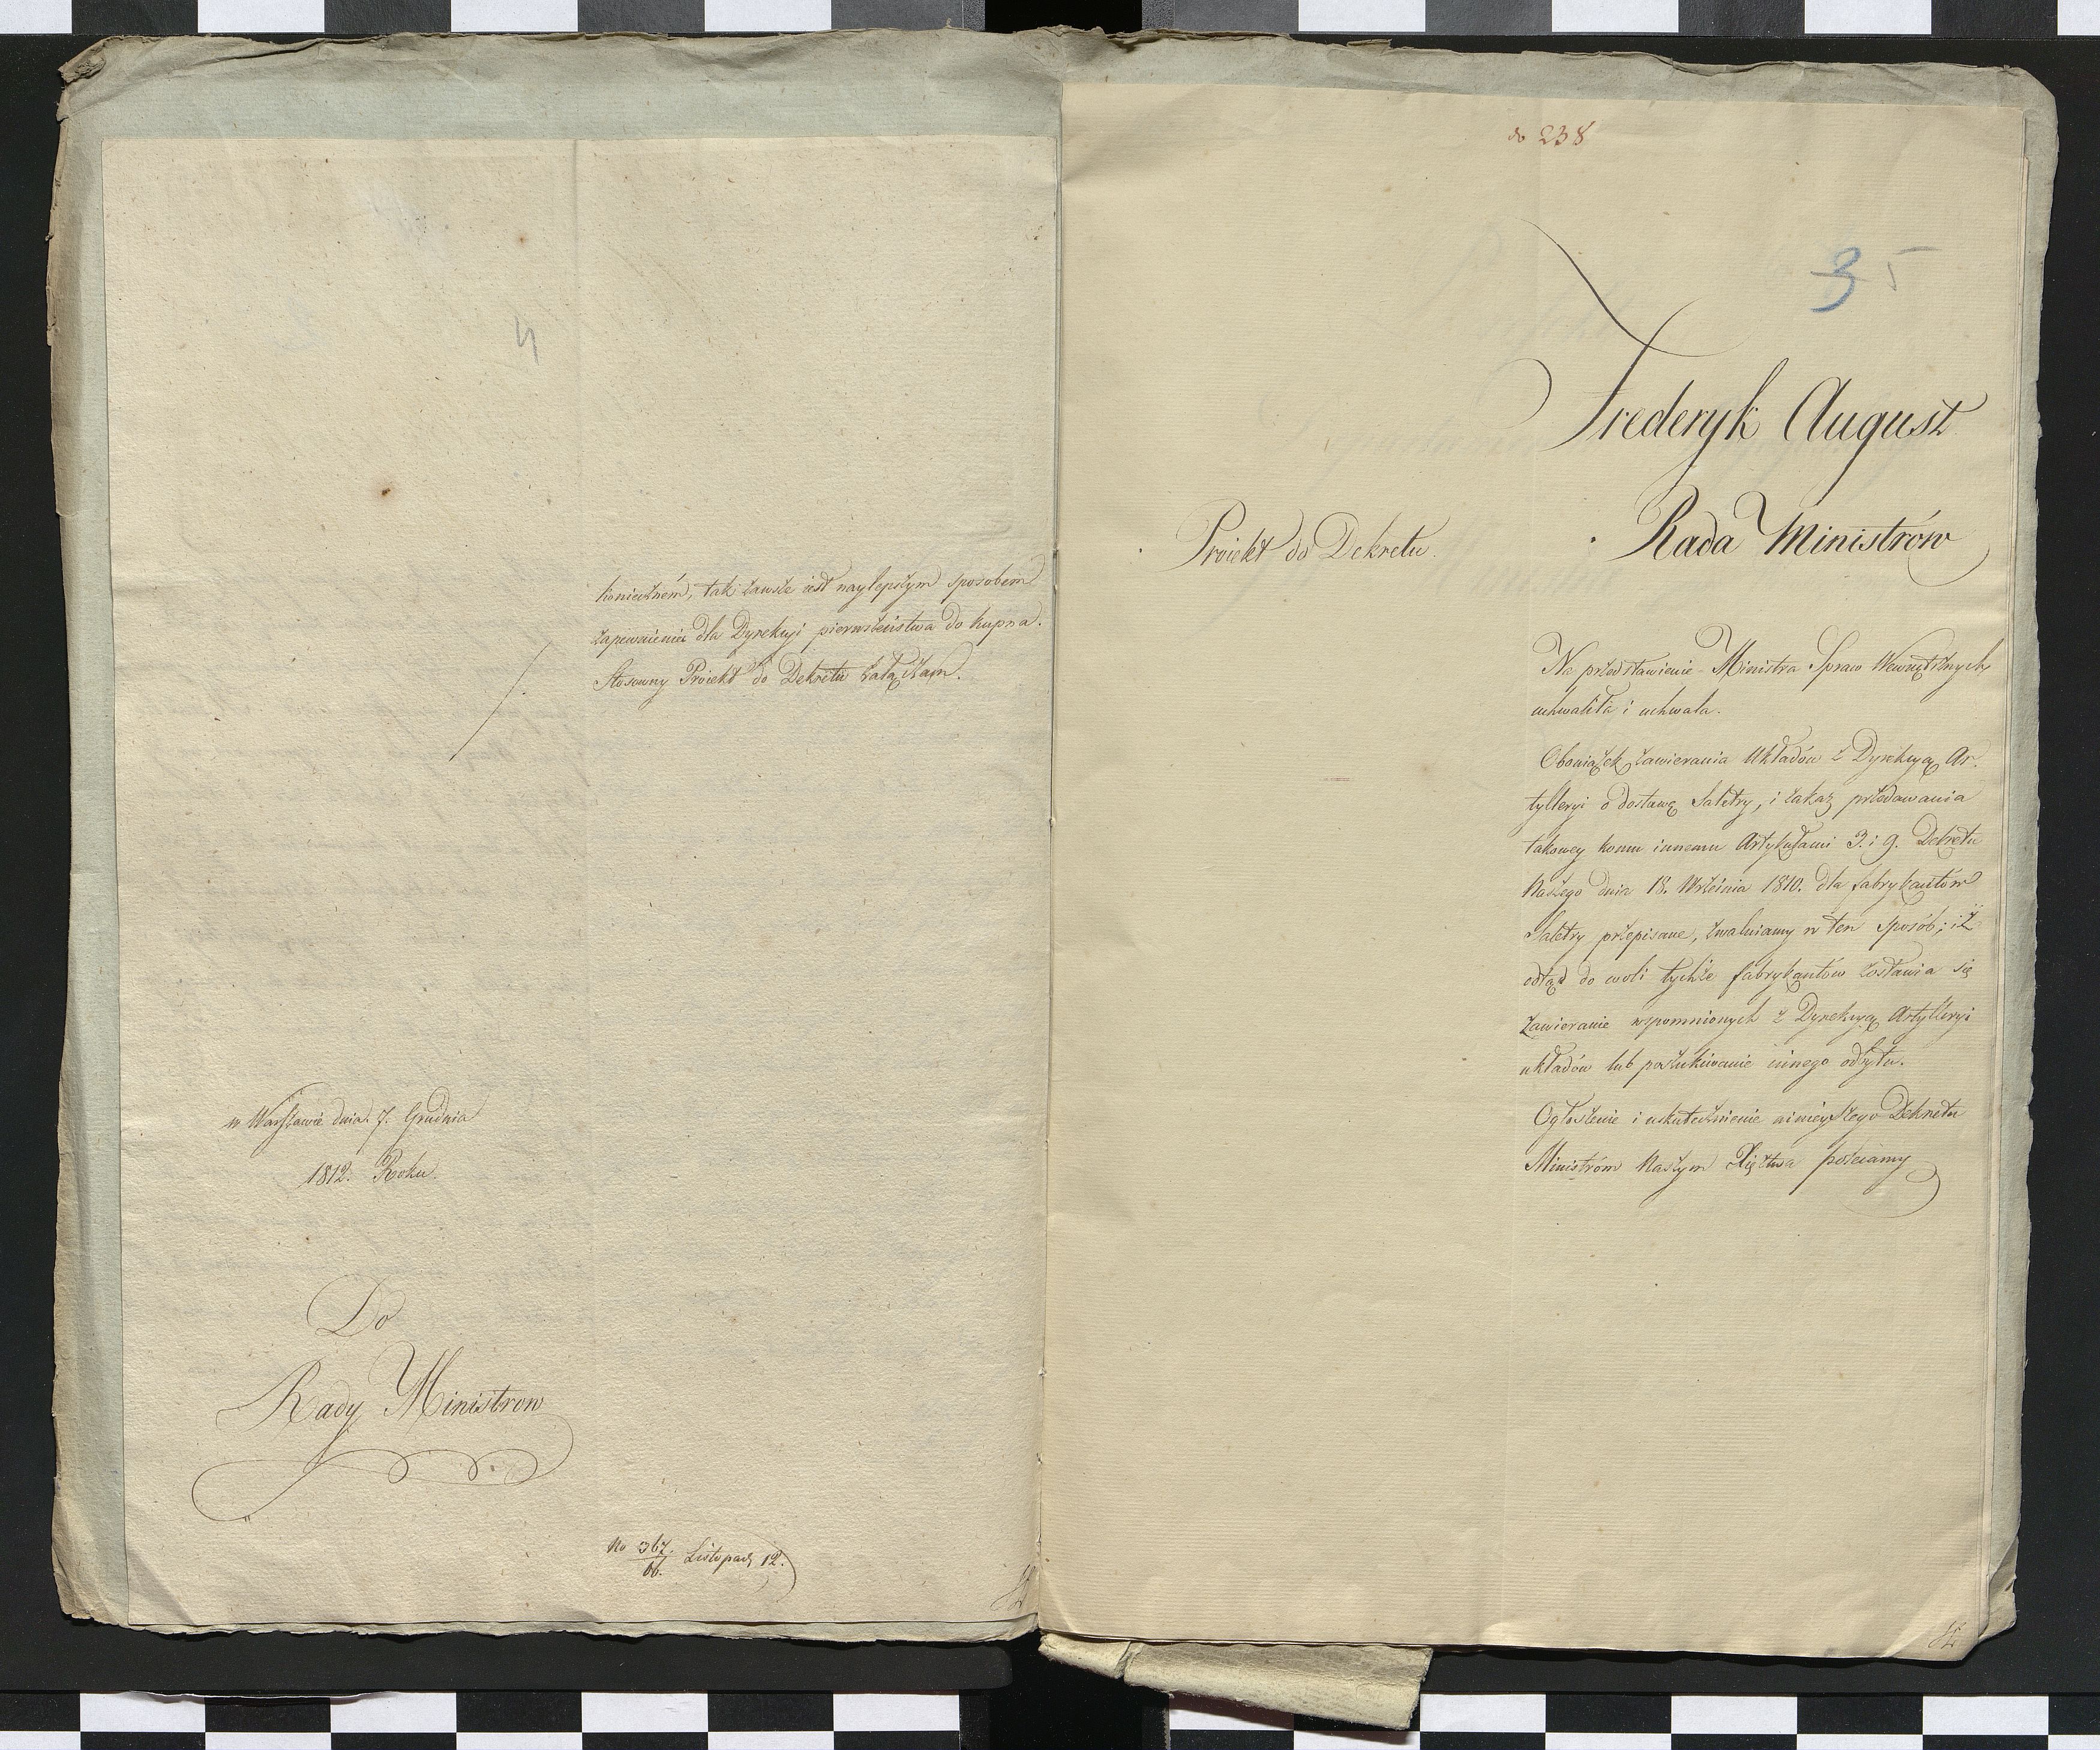 4
konieczném, tak zawsze iest naylepszym sposobem
zapewnienia dla Dyrekcyi pierwszeństwa do kupna.
Stosowny Proiekt do Dekretu załączam.
w Warszawie dnia 7. Grudnia
1812. Roku.
Do
Rady Ministrow
No 367./66. Listopad 12.
do 238
3 5
Frederyk August
Rada Ministrów
Proiekt do Dekretu.
Na przedstawienie Ministra Spraw Wewnętrznych,
uchwaliła i uchwala.
Obowiązek zawierania Układów z Dyrekcyą Ar-
tylleryi o dostawę Saletry, i zakaz przedawania
takowey komu innemu Artykułami 3. i 9. Dekretu
Naszego dnia 18. Września 1810. dla fabrykantów
Saletry przepisane, zwalniamy w ten sposób; iż
odtąd do woli tychże fabrykantów zostawia się
zawieranie wspomnionych z Dyrekcyą Artylleryi
układów lub poszukiwanie innego odbytu.
Ogłoszenie i uskutecznienie ninieyszego Dekretu
Ministrom Naszym Xięztwa polecamy